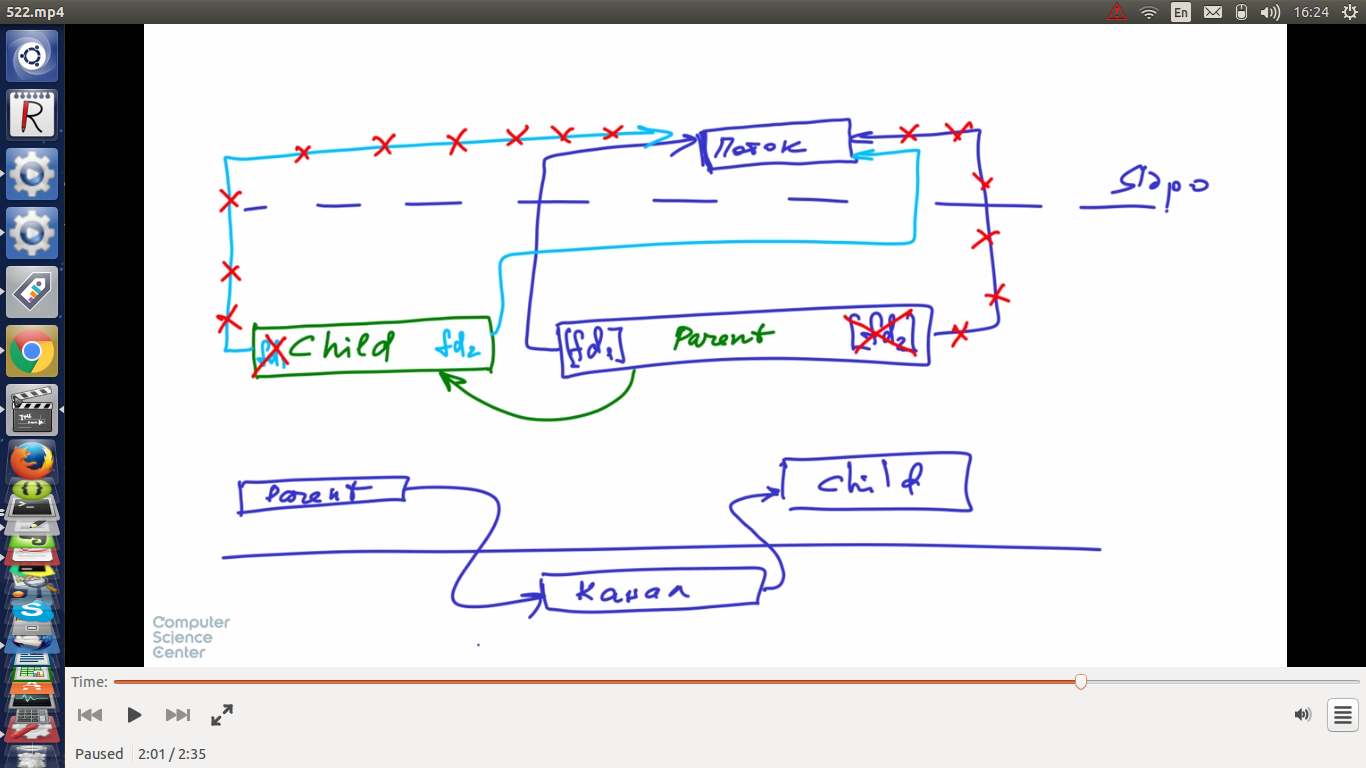 522.mp4
En
16:24
Поток
Ядро
fd1 Child fd2
[fd1] Parent [fd2]
Parent
Child
Канал
Computer
Science
Center
Time:
Paused 2:01 / 2:35